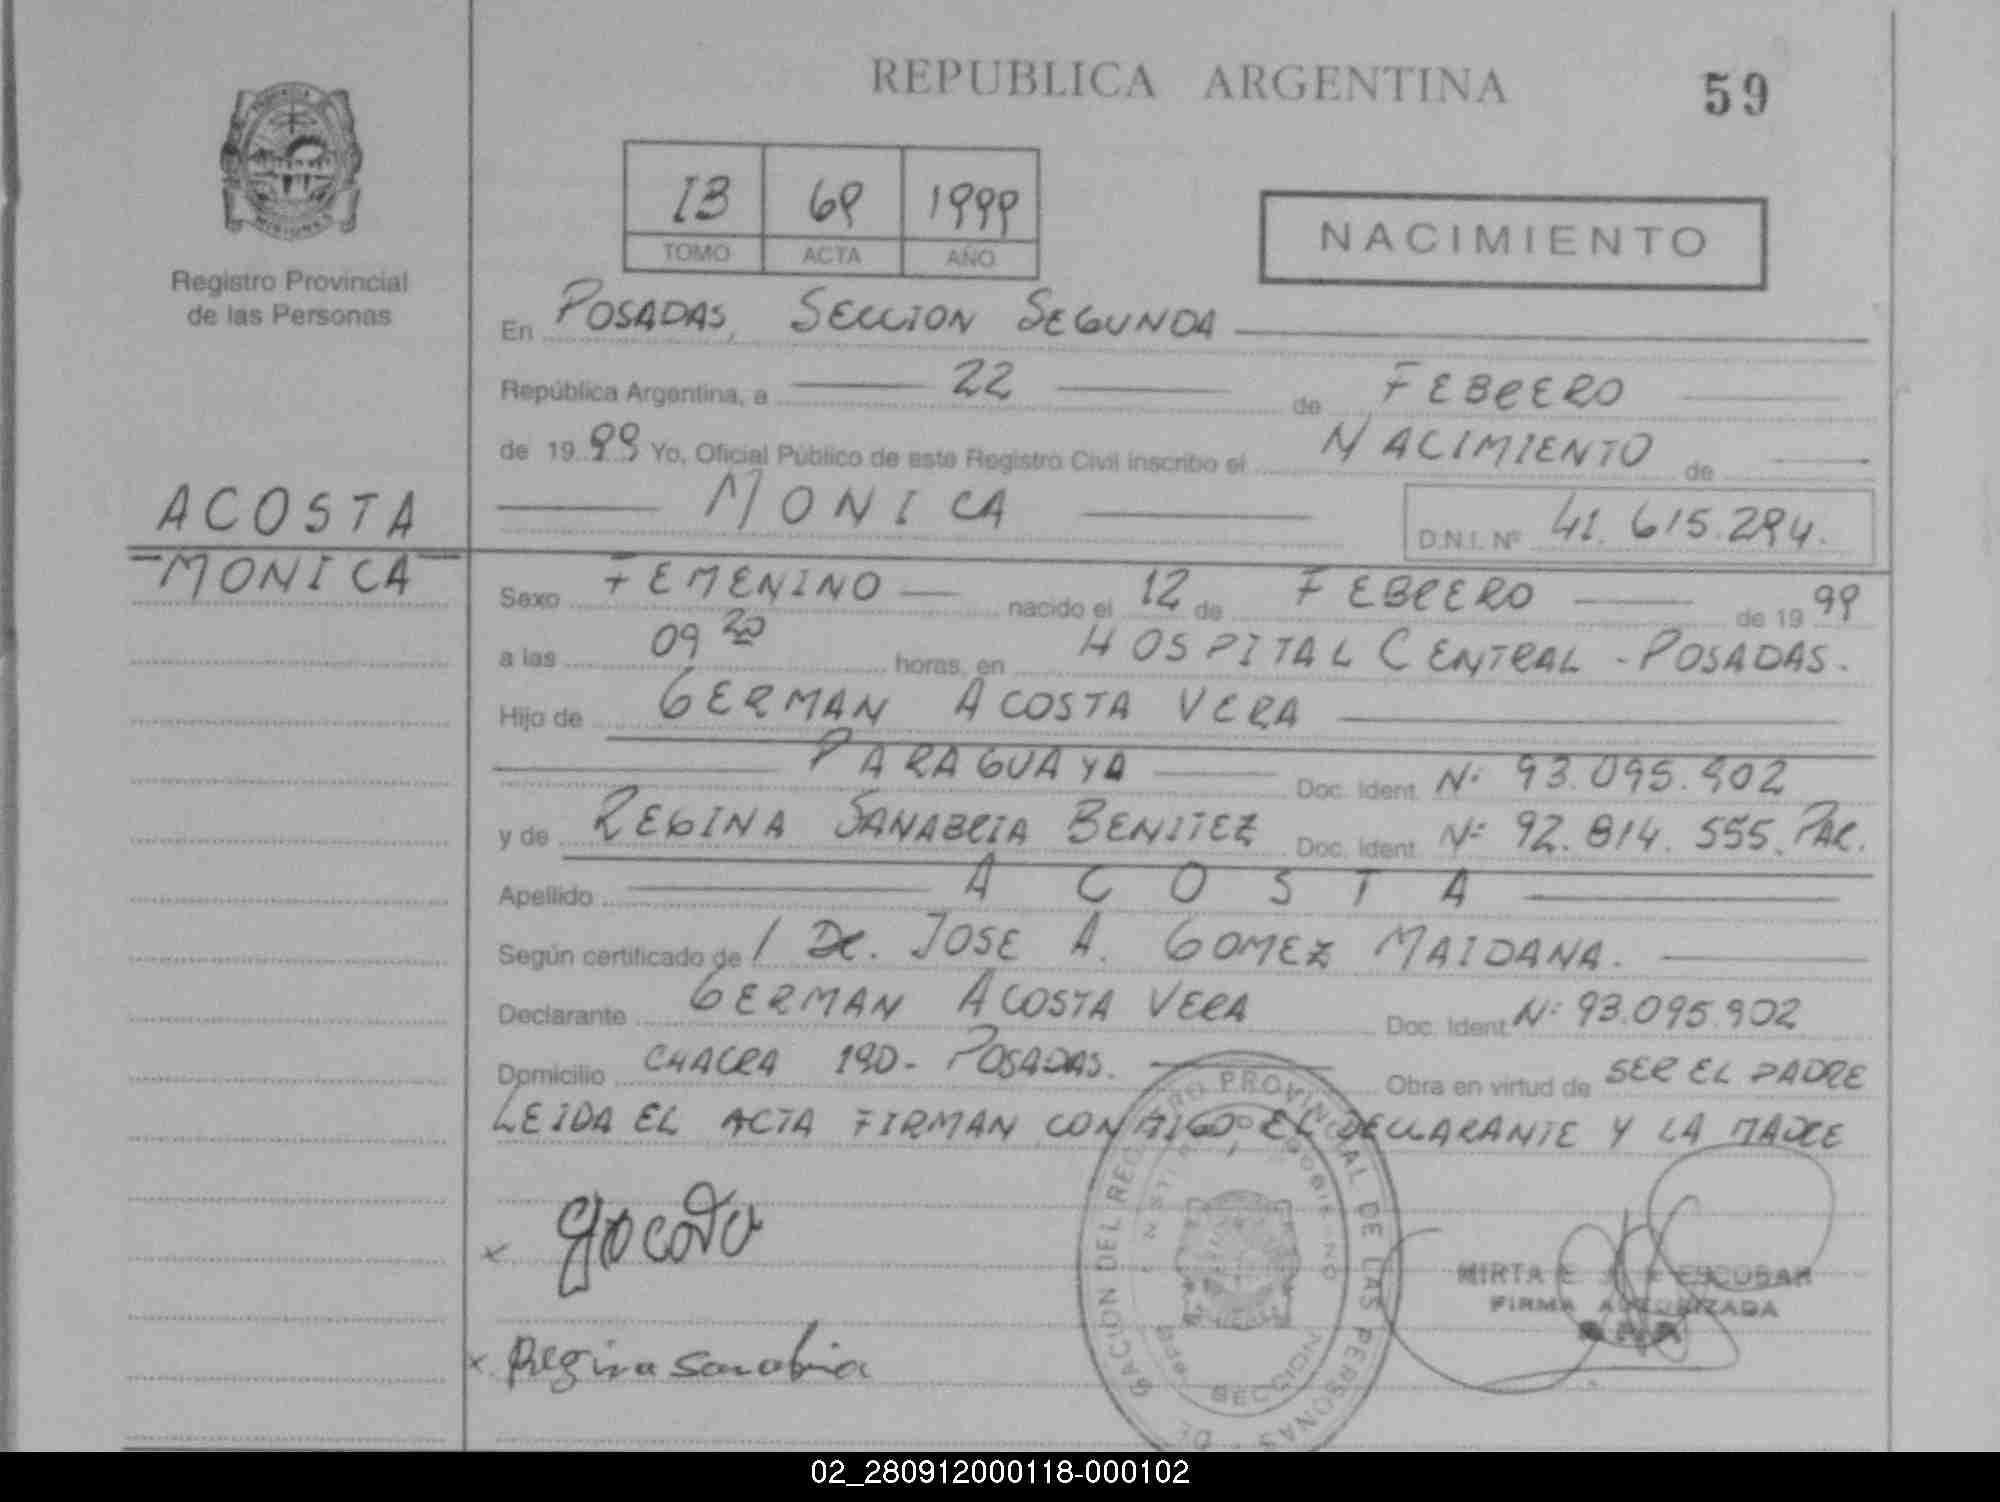 REPUBLICA ARGENTINA
59
Registro Provincial
de las Personas
MISIONES
13 69 1999
TOMO ACTA AÑO
NACIMIENTO
En POSADAS, SECCION SEGUNDA
República Argentina, a 22 de FEBRERO
de 1999 Yo, Oficial Público de este Registro Civil inscribo el NACIMIENTO de
MONICA
D.N.I. Nº 41.615.294.
ACOSTA
MONICA
Sexo FEMENINO nacido el 12 de FEBRERO de 1999
a las 09 20 horas, en HOSPITAL CENTRAL - POSADAS.
Hijo de GERMAN ACOSTA VERA
PARAGUAYA Doc. Ident. Nº 93.095.902
y de REGINA SANABRIA BENITEZ Doc. Ident. Nº 92.814.555. PAR.
Apellido ACOSTA
Según certificado de / DR. JOSE A. GOMEZ MAIDANA.
Declarante GERMAN ACOSTA VERA Doc. Ident. Nº 93.095.902
Domicilio CHACRA 190 - POSADAS. Obra en virtud de SER EL PADRE
LEIDA EL ACTA FIRMAN CONMIGO EL DECLARANTE Y LA MADRE
PROVINCIAL DE LAS PERSONAS
SECCION
MIRTA E ESCOBAR
FIRMA AUTORIZADA
x Regina Sanabria
02_280912000118-000102